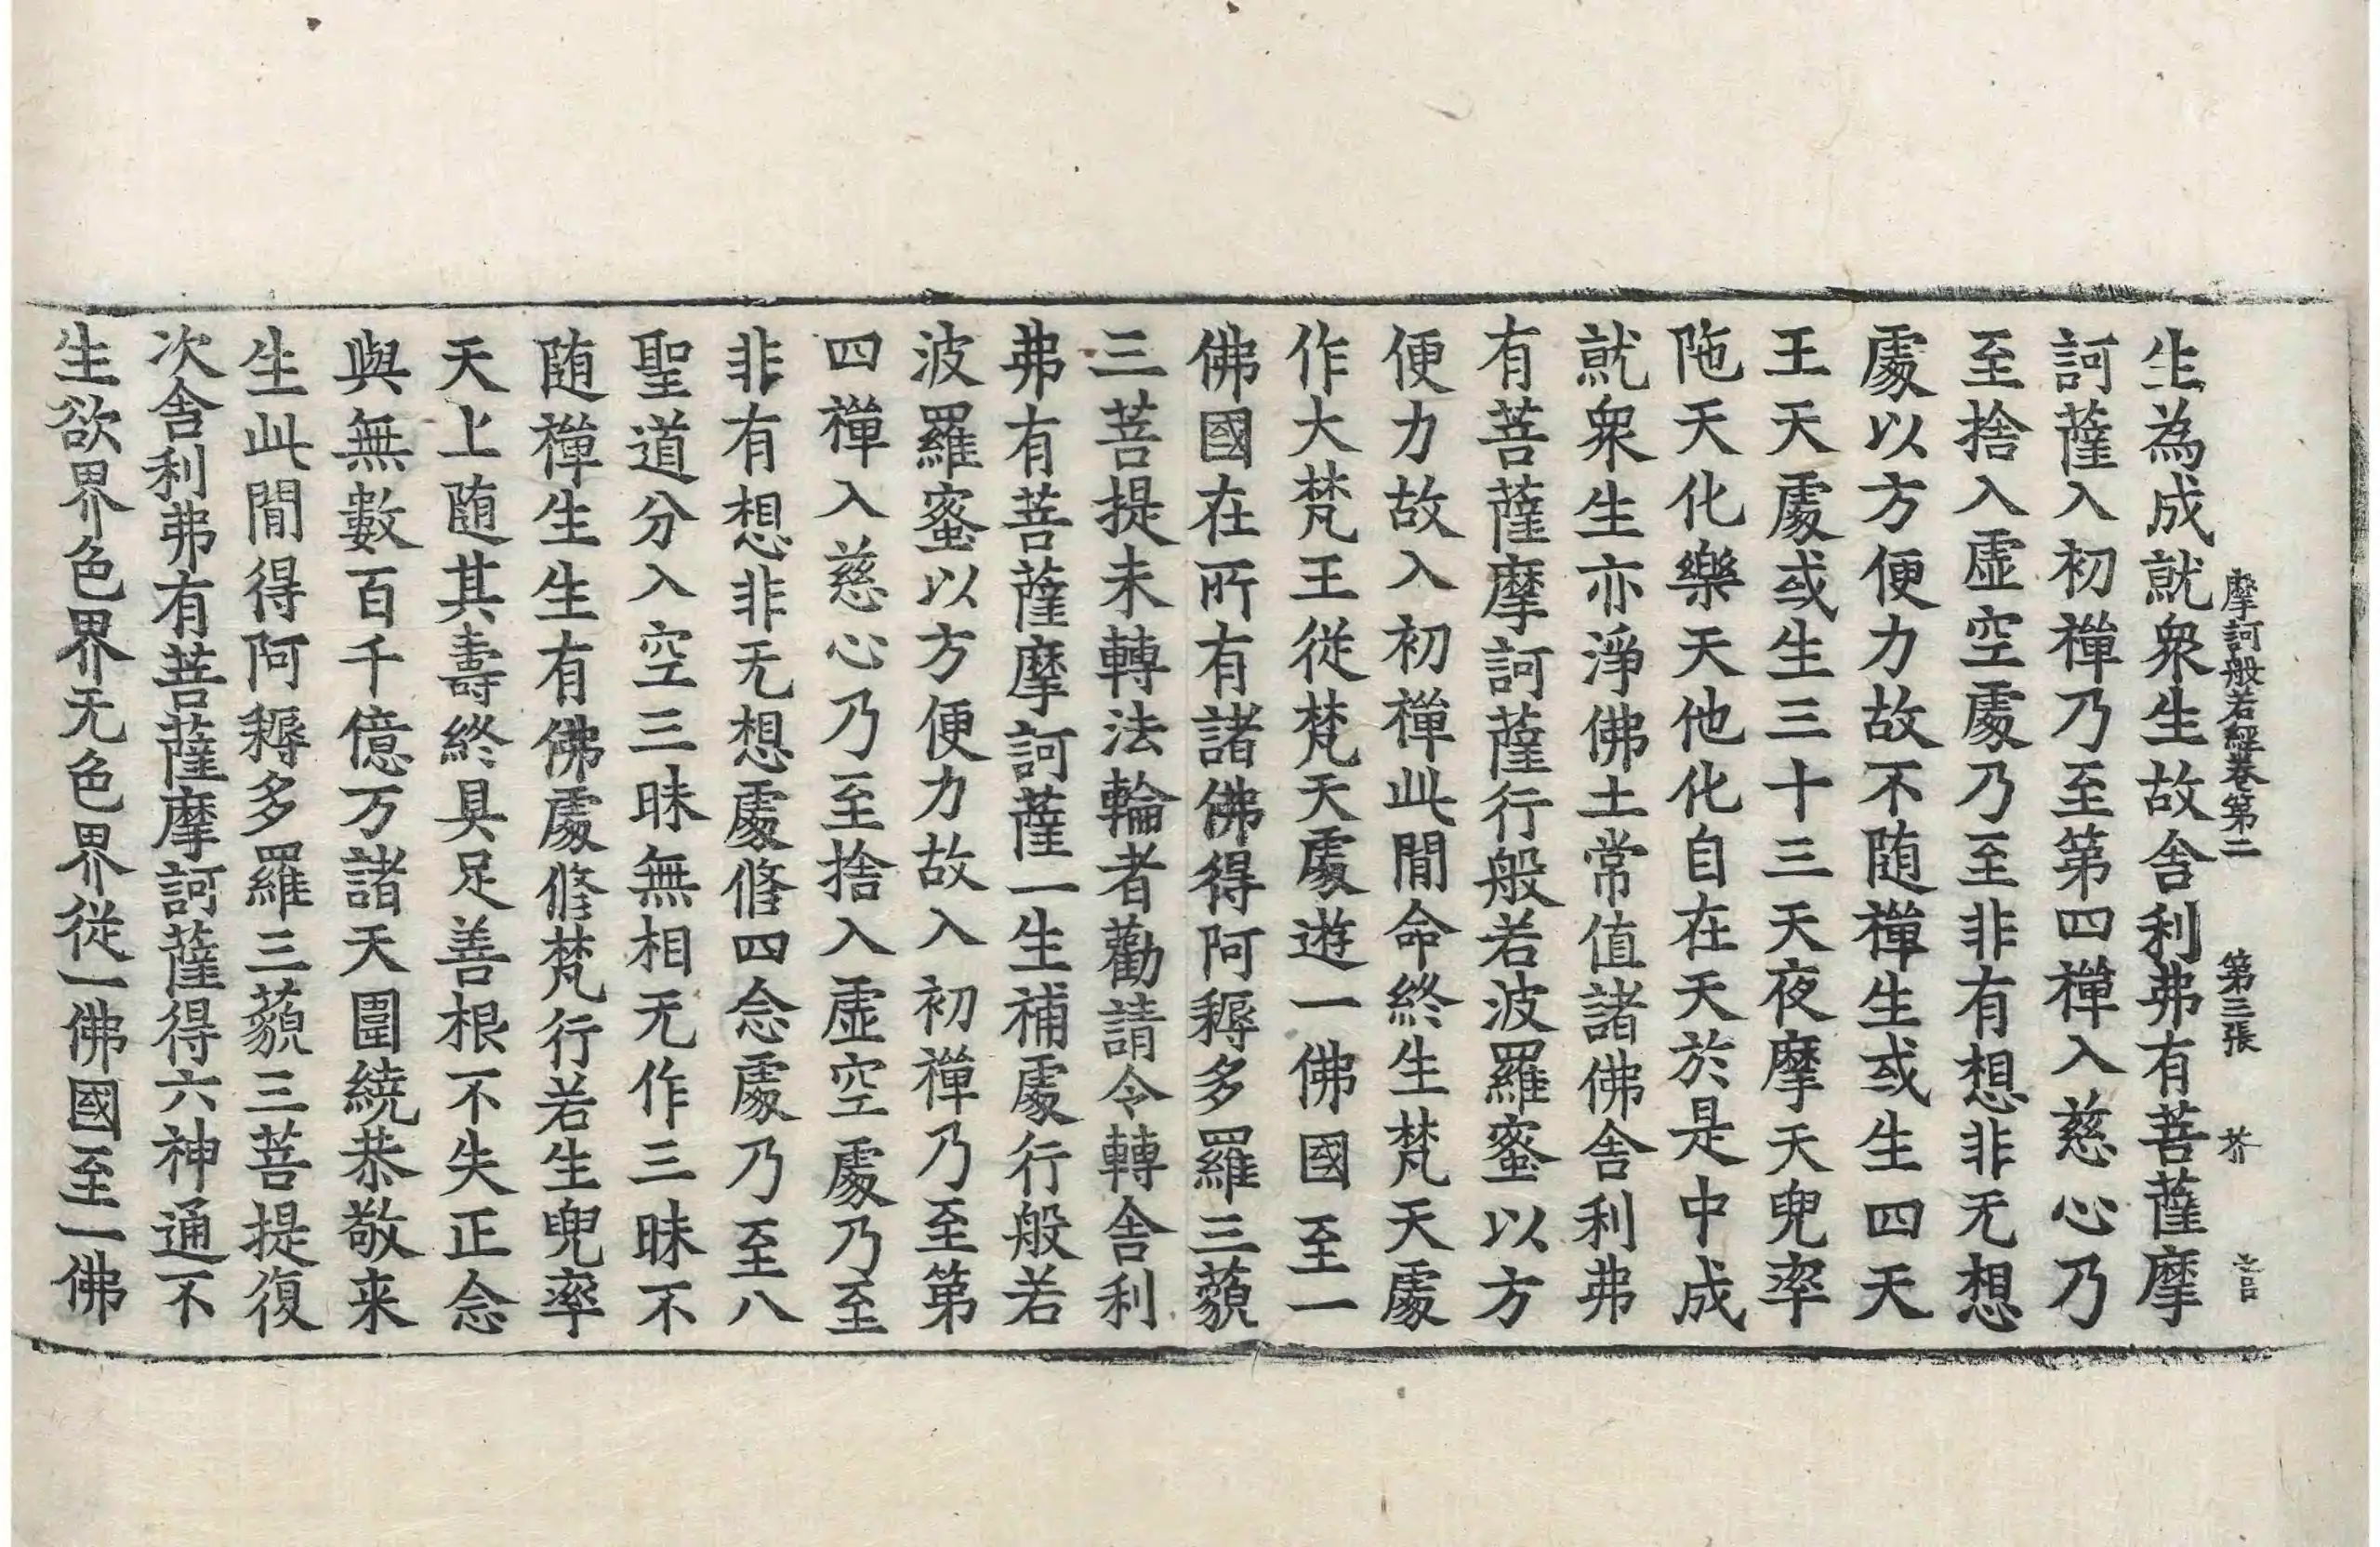 摩訶般若經卷第二　第三張　芥
生為成就衆生故舎利弗有菩薩摩
訶薩入初禪乃至第四禪入慈心乃
至捨入虛空處乃至非有想非无想
處以方便力故不随禪生或生四天
王天處或生三十三天夜摩天兜率
陁天化樂天他化自在天於是中成
就衆生亦淨佛土常值諸佛舎利弗
有菩薩摩訶薩行般若波羅蜜以方
便力故入初禪此閒命終生梵天處
作大梵王従梵天處遊一佛國至一
佛國在所有諸佛得阿耨多羅三藐
三菩提未轉法輪者勸請令轉舎利
弗有菩薩摩訶薩一生補處行般若
波羅蜜以方便力故入初禪乃至第
四禪入慈心乃至捨入虛空處乃至
非有想非无想處修四念處乃至八
聖道分入空三昧無相无作三昧不
随禪生生有佛處修梵行若生兜率
天上随其壽終具足善根不失正念
與無數百千億万諸天圍繞恭敬来
生此閒得阿耨多羅三藐三菩提復
次舎利弗有菩薩摩訶薩得六神通不
生欲界色界无色界従一佛國至一佛